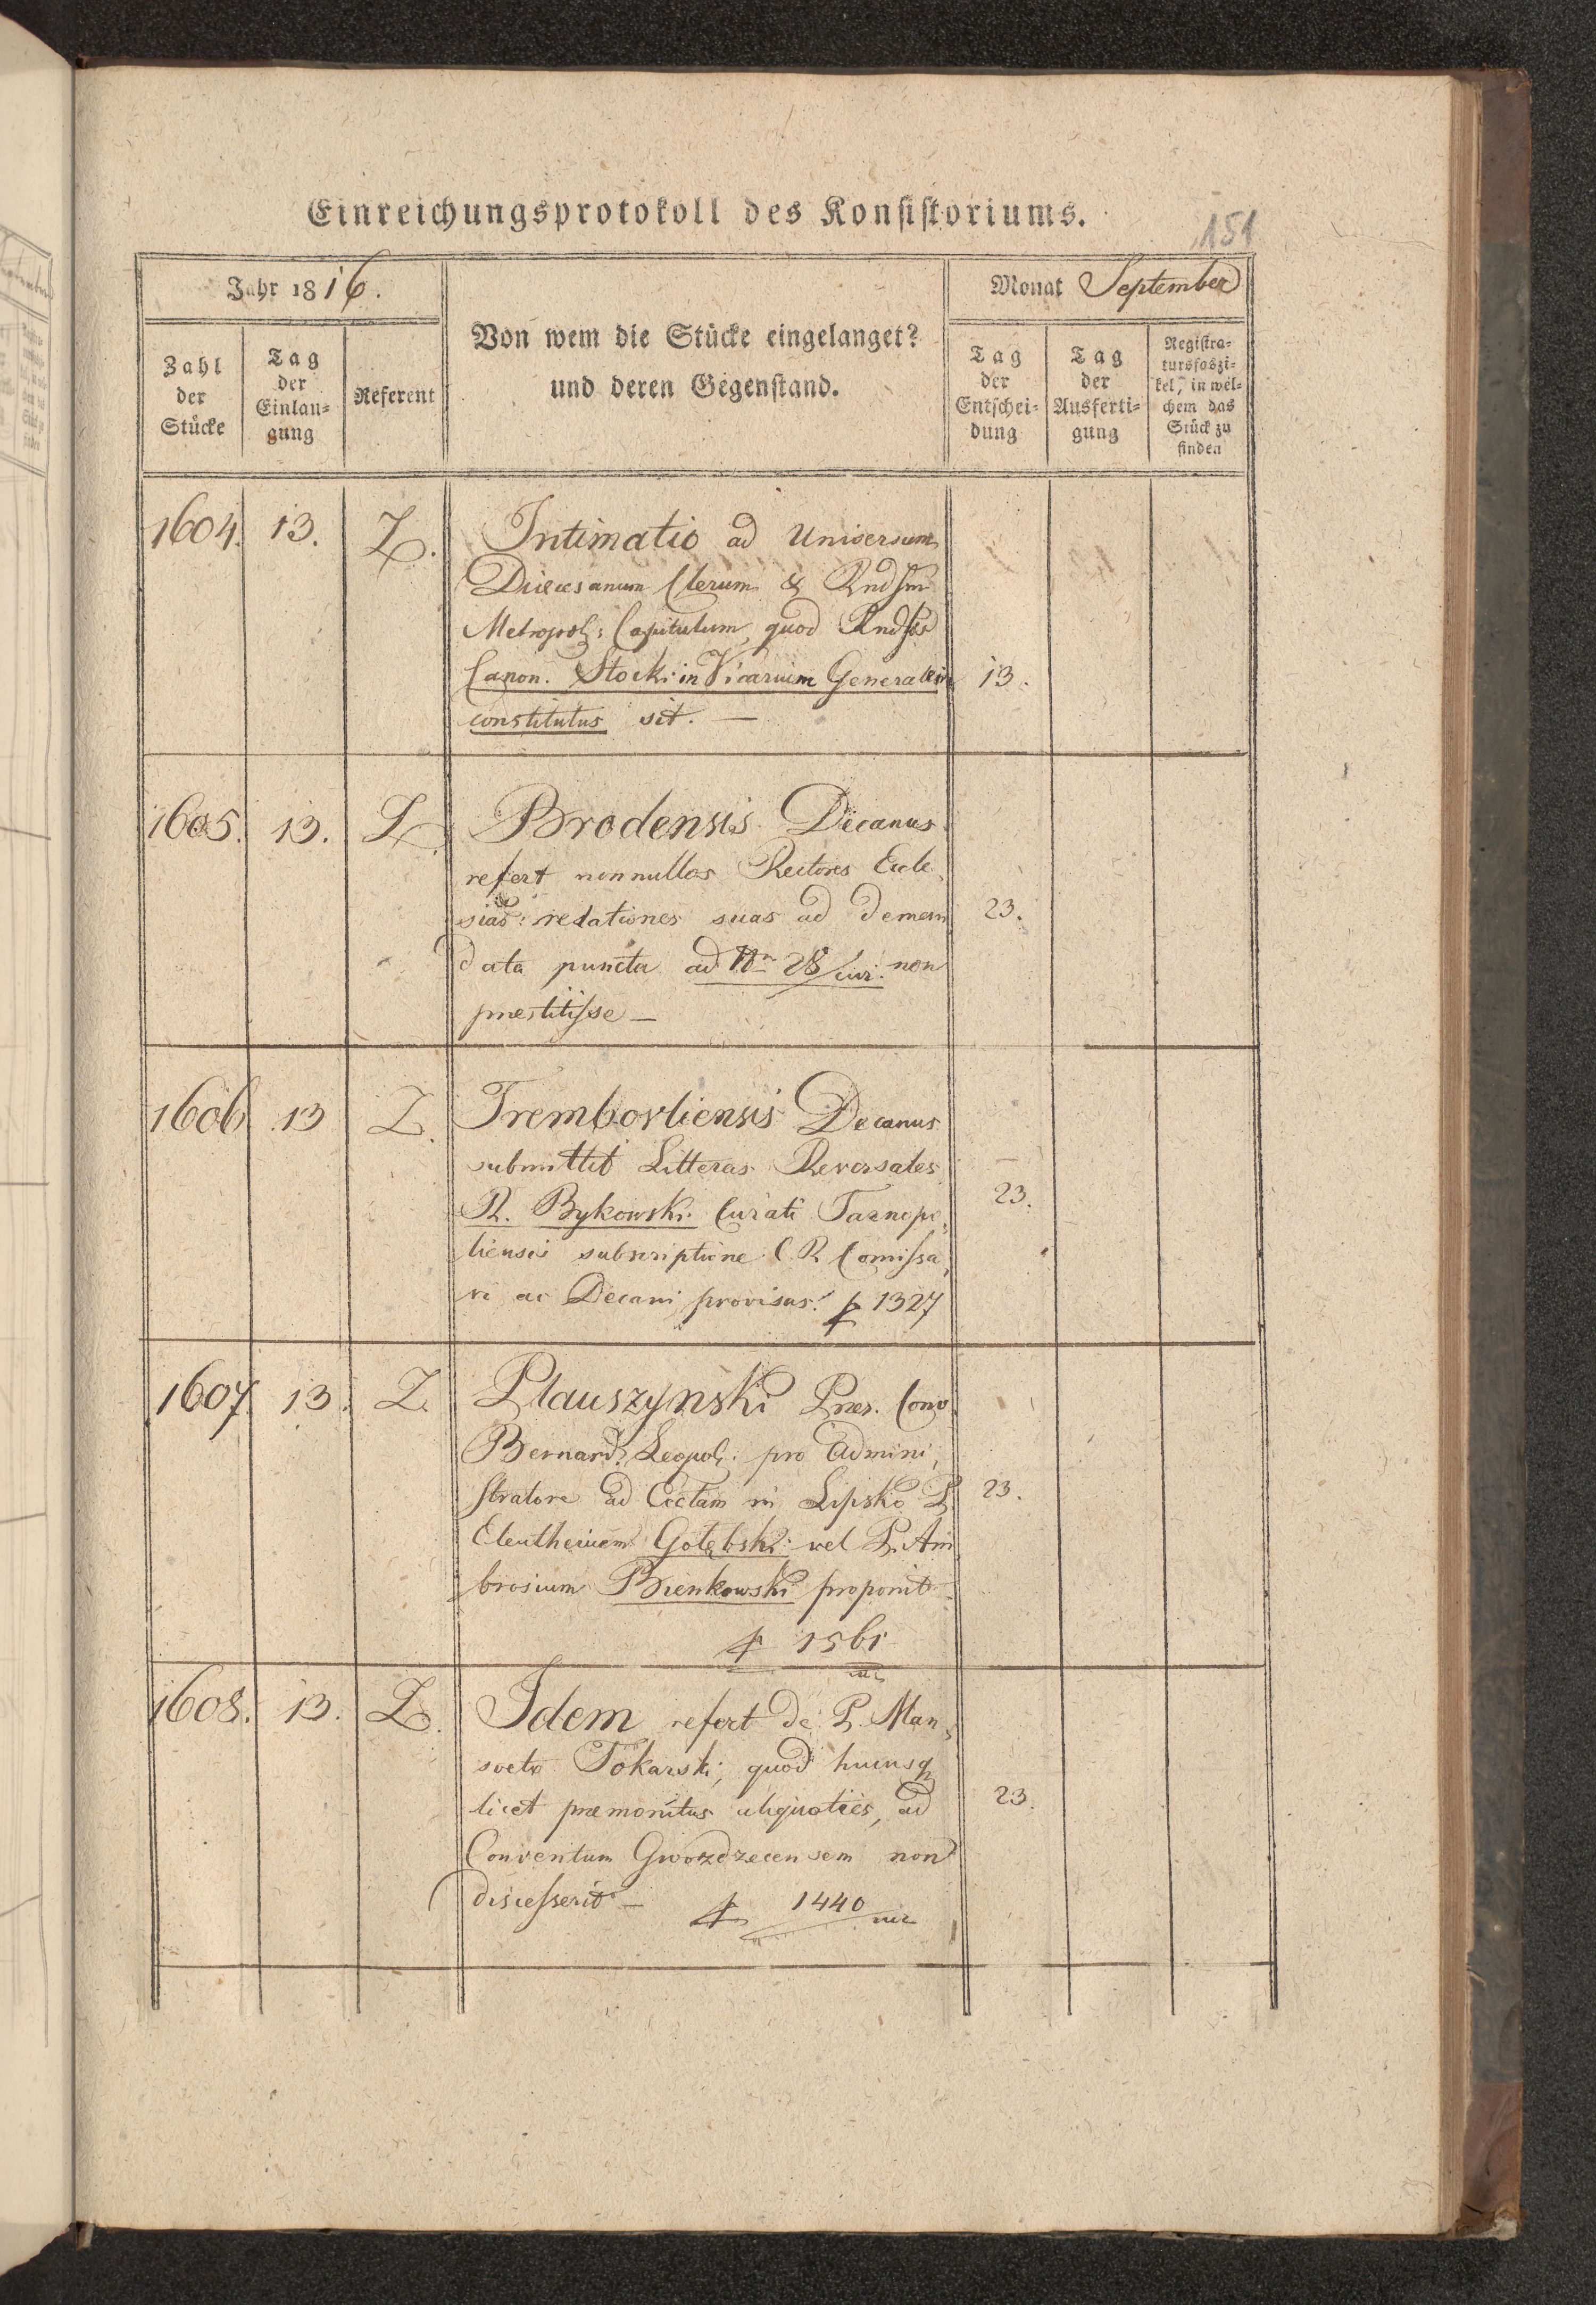 Einreichungsprotokoll des Konsistoriums.
151
Jahr 1816.
Von wem die Stücke eingelanget?
und deren Gegenstand.
Monat September
Zahl
der
Stücke
Tag
der
Einlan-
gung
Referent
Tag
der
Entschei-
dung
Tag
der
Ausferti-
gung
Registra-
tursfaszi-
kel, in wel-
chem das
Stück zu
finden
1604. 13. Z. Intimatio ad Universum
Diaecesanum Clerum & Rndssm
Metropol: Capitulum, quod Rndss
Canon. Stocki in Vicarium Generalem 13.
constitutus sit. —
1605. 13. Z. Brodensis Decanus
refert nonnullos Rectores Eccle,
siar: relationes suas ad deman 23.
data puncta ad Nr 28/cur. non
praestitisse —
1606 13 Z. Trembovliensis Decanus
submittit Litteras Reversales
R. Bykowski Curati Tarnopo, 23.
liensis subscriptione C. R. Comissa,
ri ac Decani provisas. p 1327
1607. 13. Z. Plauszynski Praes. Conv.
Bernard. Leopol. pro Admini,
stratore ad Ecclam in Lipsko P. 23.
Eleutherium Gołębski vel P. Am
brosium Bienkowski proponit
p 1561
1608. 13. Z. Idem refert de P. Man,
sveto Tokarski, quod hucusq
licet praemonitus aliquoties, ad 23.
Conventum Gwozdzecensem non
discesserit — p 1440